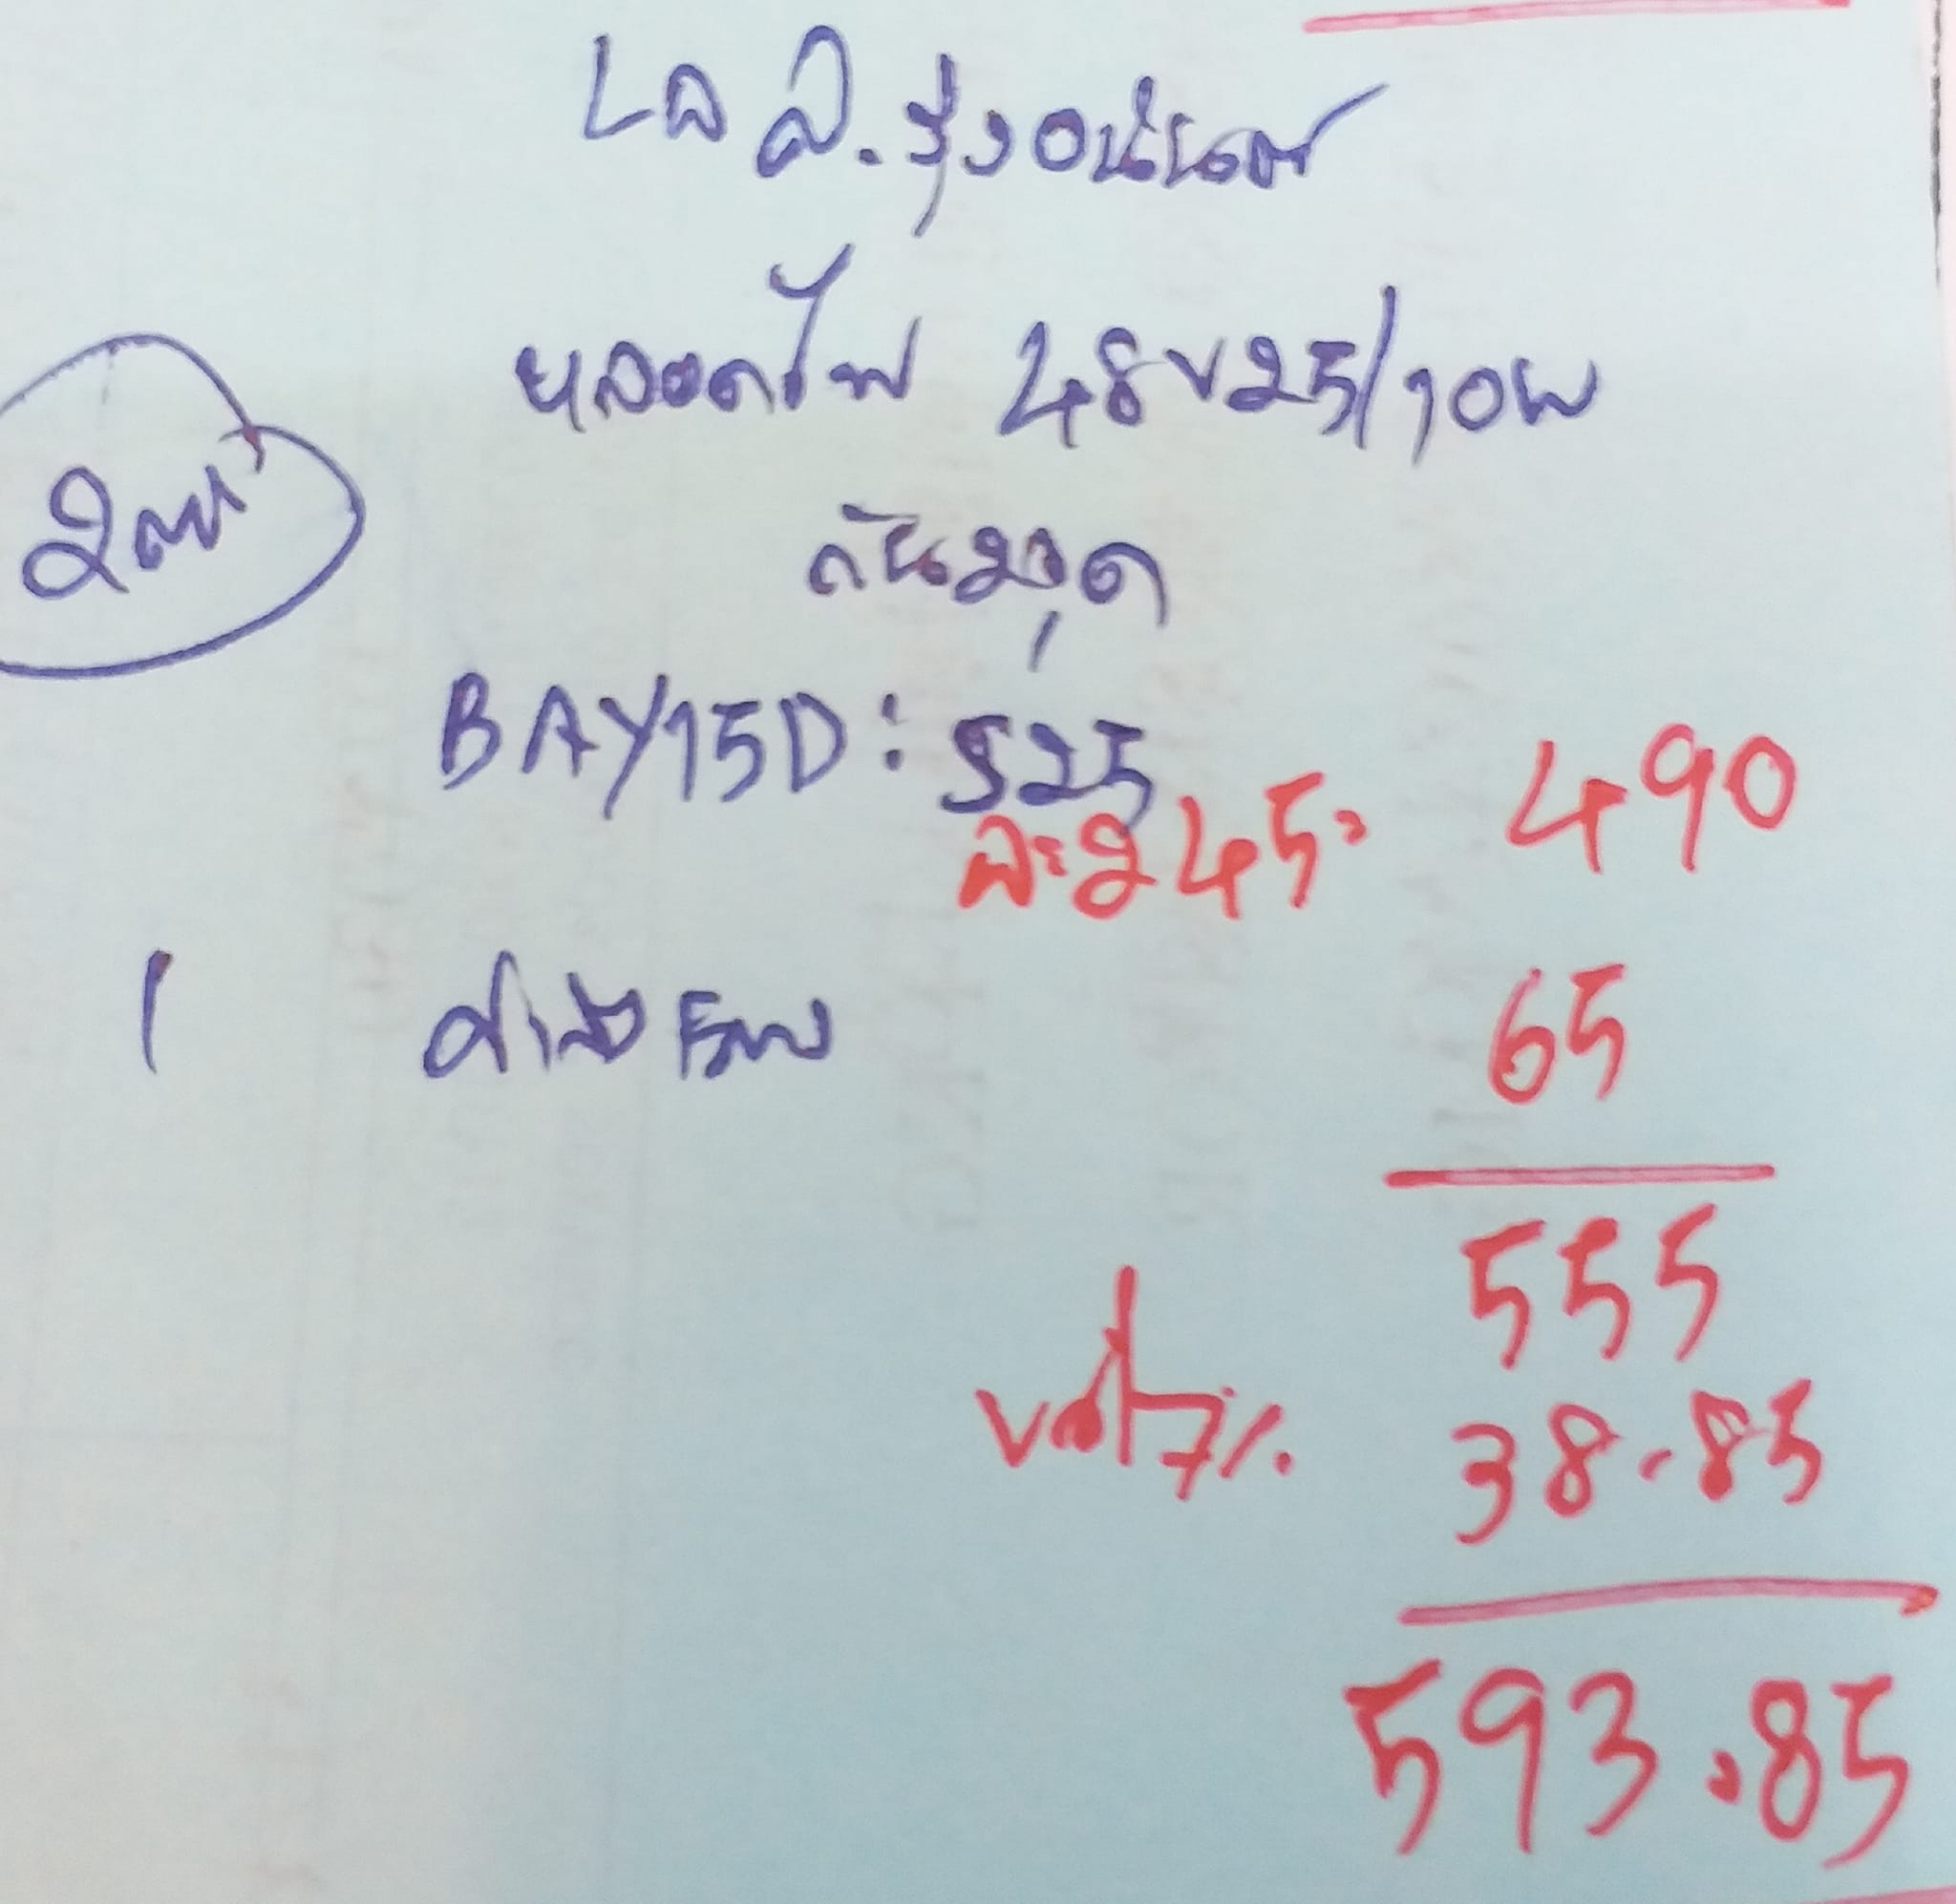 LA ส.รุ่งอนันต์
หลอดไฟ 48V25/10W
2 ดวง
BAY15D: S25
ละ245= 490
1 ค่าส่ง EMS 65
555
vat7% 38.85
593.85